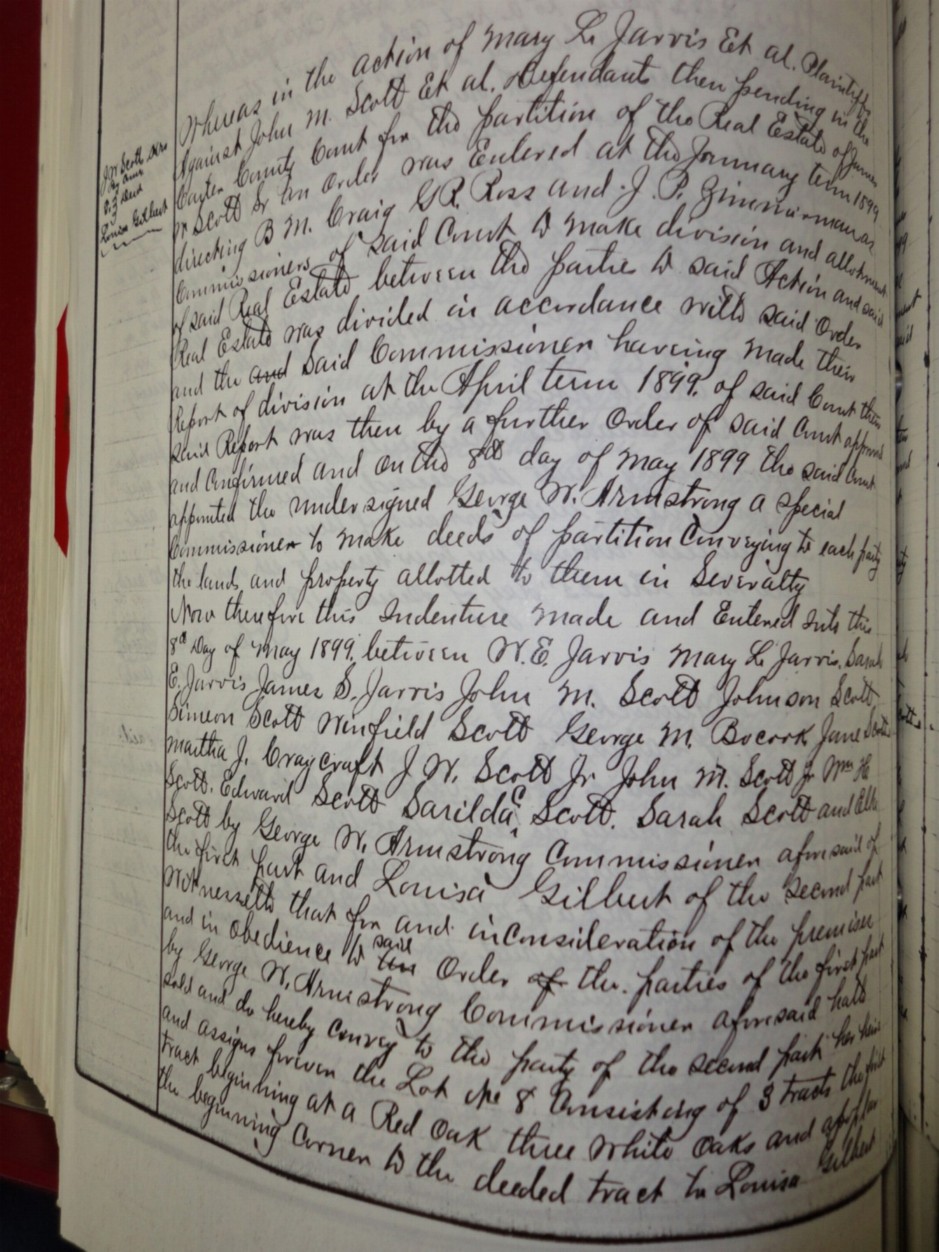 J W Scott
By Com
To Deed
Louisa Gilbert
Whereas in the action of Mary L. Jarvis Et al. Plaintiffs
Against John M. Scott Et al. Defendants then pending in the
Carter County Court for the partition of the Real Estate of James
W Scott & an Order was Entered at the January term 1899
directing B M. Craig G.R. Ross and J. P. Zimmerman as
Commissioners of said Court to make division and allotment
of said Real Estate between the parties to said Action and said
Real Estate was divided in accordance with said Order
and the and said Commissioner having made their
Report of division at the April term 1899. of said Court then
said Report was then by a further Order of said Court approved
and Confirmed and on the 8th day of May 1899 the said Court
appointed the undersigned George W. Armstrong a Special
Commissioner to make deeds of partition Conveying to each party
the lands and property allotted to them in Severalty
Now therefore this Indenture made and Entered into this
8th Day of May 1899. between W. E. Jarvis Mary L. Jarvis, Sarah
E. Jarvis James S. Jarvis John M. Scott Johnson Scott,
Simeon Scott Winfield Scott George M. Bocook Jane Scott
Martha J. Craycraft J. W. Scott Jr John M. Scott Jr Wm H
Scott. Edward Scott Sarilda C Scott. Sarah Scott and
Scott by George W. Armstrong Commissioner aforesaid of
the first part and Louisa Gilbert of the second part
Witnesseth that for and inconsideration of the premises
and in obedience to said Order of the parties of the first part
by George W. Armstrong Commissioner aforesaid hath
sold and do hereby convey to the party of the second part her heirs
and assigns forever the Lot No 8 Consisting of 3 tracts the first
tract beginning at a Red Oak three White Oaks and
the beginning Corner to the deeded tract to Louisa Gilbert